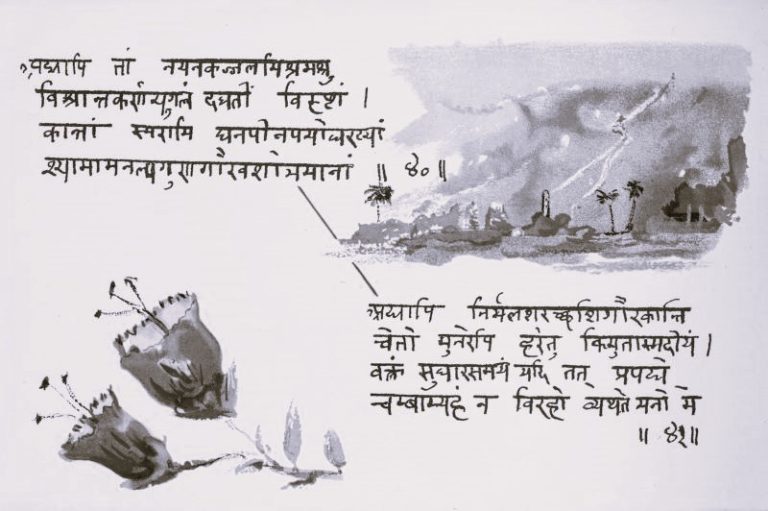 अद्यापि तां नयनकज्जलमिश्रमश्रु
विश्रान्तकर्णयुगलं दधतीं विदृशं ।
कान्तां स्मरामि घनपीनपयोधराढ्यां
श्यामामनल्पगुणगौरवशोभमानां ॥ ४० ॥
अद्यापि निर्मलशरच्छशिगौरकान्ति
चेतो मुनेरपि हरेत्तु किमुतास्मदीयं ।
वक्त्रं सुधारसमयं यदि तत् प्रपद्ये
चुम्बाम्यहं न विरहो व्यथते मनो मे
॥ ४१ ॥